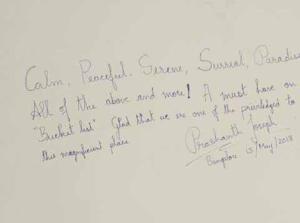 Calm, Peaceful. Serene, Surreal, Paradise
All of the above and more! A must have on
"Bucket list" Glad that we are one of the priviledged to
this magnificient place.
Prashanth Joseph
Bangalore 15/May/2018